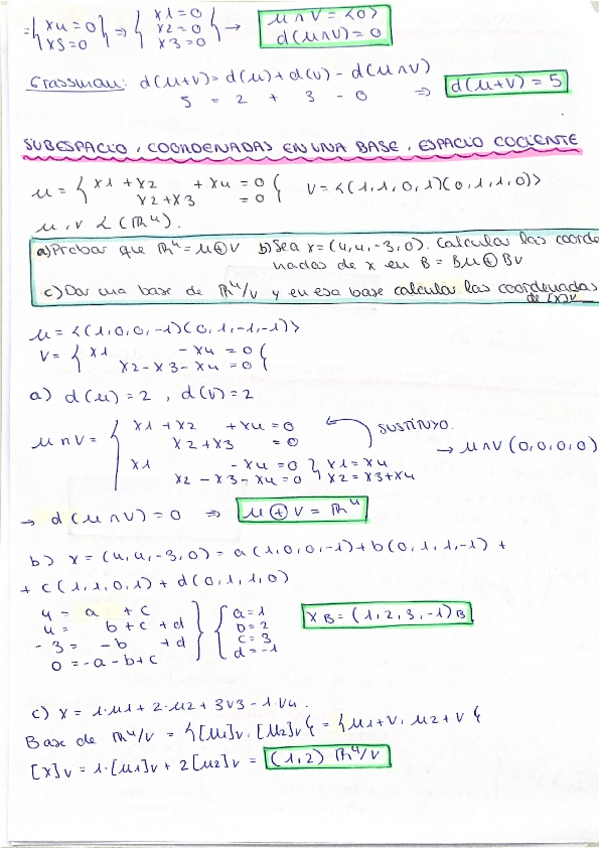 ={x4=0 x5=0 ⇒ {x1=0 x2=0 x3=0 { → u∩V = <0> d(u∩V)=0
Grassman: d(u+v)=d(u)+d(v)-d(u∩V)
5 = 2 + 3 - 0 ⇒ d(u+v)=5
SUBESPACIO, COORDENADAS EN UNA BASE, ESPACIO COCIENTE
u = { x1+x2 +x4=0 { V=<(1,1,0,1)(0,1,1,0)>
x2+x3 =0
u, v L (R⁴).
a) Probar que R⁴=u⊕V b) Sea x=(4,4,-3,0). Calcular las coorde
nadas de x en B=Bu⊕Bv
c) Dar una base de R⁴/v y en esa base calcular las coordenadas
de [x]v
u=<(1,0,0,-1)(0,1,-1,-1)>
V= { x1 -x4=0 {
x2-x3-x4=0
a) d(u)=2, d(v)=2
u∩V= { x1+x2 +x4=0
x2+x3 =0
SUSTITUYO.
→ u∩V (0,0,0,0)
x1 -x4=0 } x1=x4
x2-x3-x4=0 } x2=x3+x4
→ d(u∩V)=0 ⇒ u⊕V=R⁴
b) x=(4,4,-3,0)=a(1,0,0,-1)+b(0,1,1,-1)+
+c(1,1,0,1)+d(0,1,1,0)
4= a +c
4= b+c+d
-3= -b +d
0=-a-b+c
a=1
b=2
c=3
d=-1
xB=(1,2,3,-1)B
c) x=1·u1+2·u2+3v3-1·v4.
Base de R⁴/v = {[u1]v, [u2]v{ = {u1+v, u2+v{
[x]v=1·[u1]v+2[u2]v= (1,2) R⁴/v